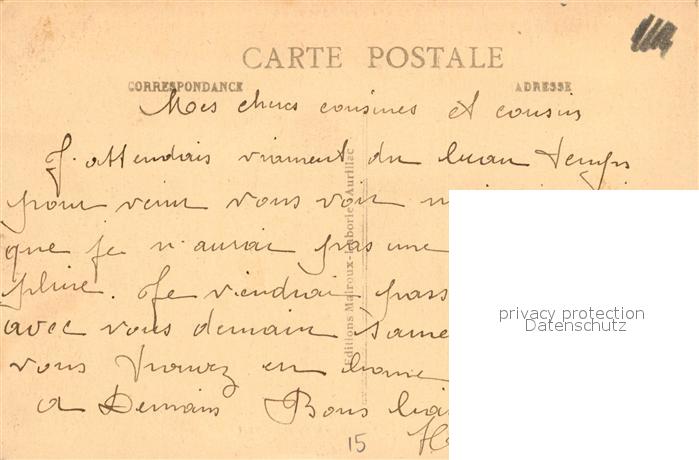 CARTE POSTALE
CORRESPONDANCE ADRESSE
Mes chers cousines et cousin
J'attendais vraiment du beau temps
pour venir vous voir
que je n'aurai pas une
pluie. Je viendrai pass
avec vous demain Same
vous trouvez en bonne
a Demain Bons bai
Editions Malroux-Laborie-Aurillac
15
privacy protection
Datenschutz